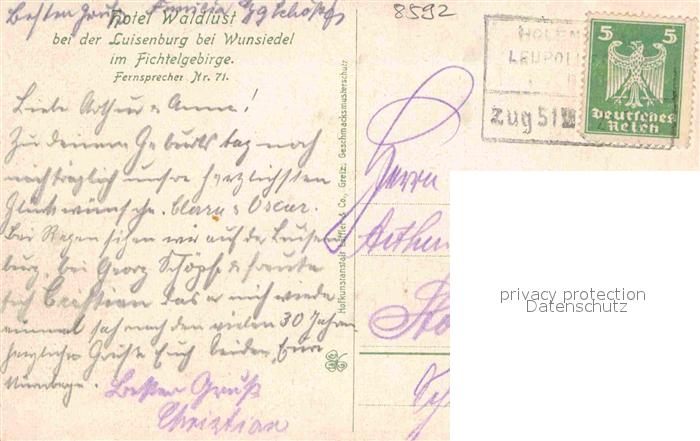 Besten Gruß Familie
8592
Hotel Waldlust
bei der Luisenburg bei Wunsiedel
im Fichtelgebirge.
Fernsprecher Nr. 71.
Liebe Arthur u Anna!
Zu deinem Geburtstag noch
nachträglich unsre herzlichsten
Glückwünsche. Clara u Oscar.
Bei Regen sitzen wir auf der Luisen
burg, bei Georg Schöpf u freute
sich Christian das er mich wieder
einmal sah nach den vielen 30 Jahren
herzliche Grüße Euch beiden, Eure
Besten Gruß
Christian
Hofkunstanstalt Löffler & Co., Greiz. Geschmacksmusterschutz.
HOLEN
LEUPOL
Zug 51
5 5
Deutsches
Reich
Herrn
Arthur
privacy protection
Datenschutz